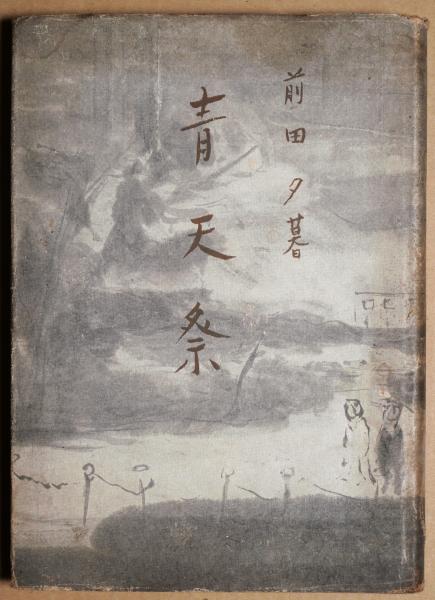 前田夕暮
青天祭